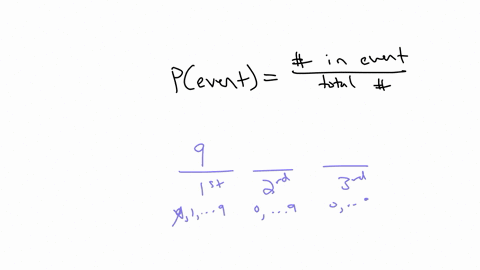 P(event) = # in event / total #
9
1st 2nd 3rd
0,1,...9 0,...9 0,...